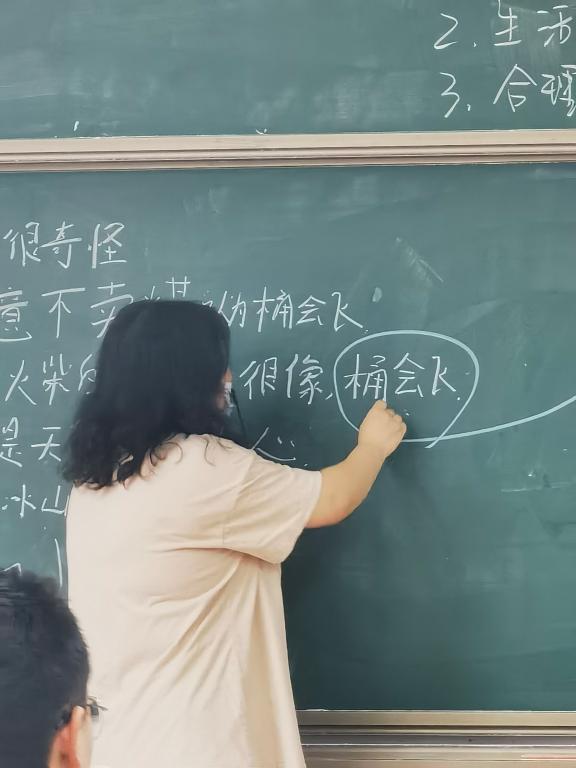 2. 生活
3. 合理
很奇怪
意不卖 为桶会飞
火柴 很像, 桶会飞
是天 心
冰山